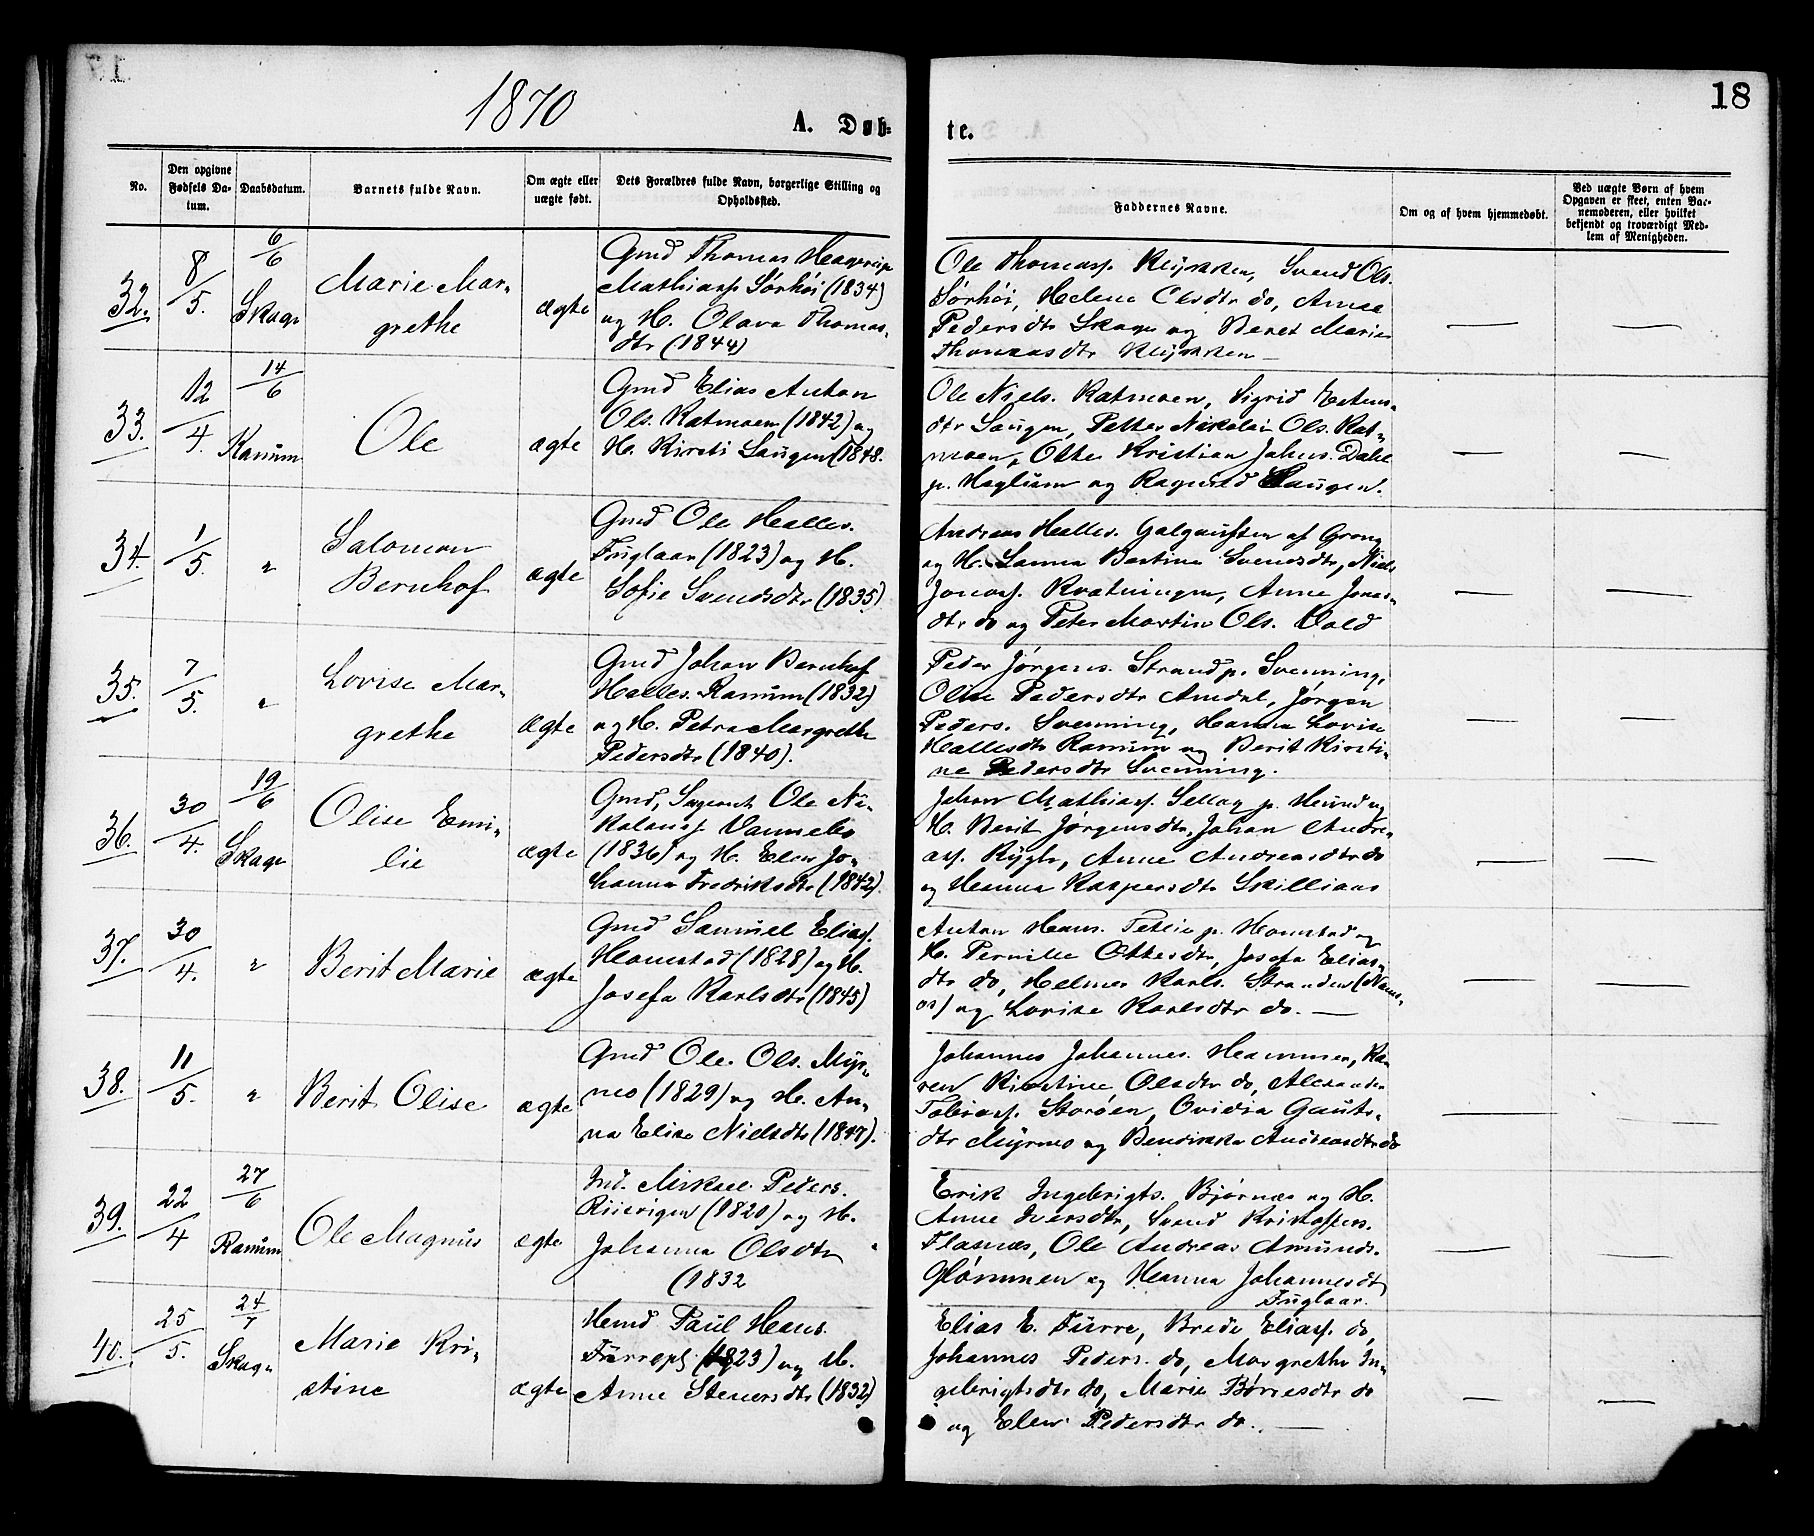 18
1870
A. Døb-
te.
No.
Den opgivne Fødsels Da-tum.
Daabsdatum.
Barnets fulde Navn.
Om ægte eller uægte født.
Dets Forældres fulde Navn, borgerlige Stilling og Opholdssted.
Faddernes Navne.
Om og af hvem hjemmedøbt.
Ved uægte Børn af hvem Opgaven er skeet, enten Bar-nemoderen, eller hvilket bekjendt og troværdigt Med-lem af Menigheden.
32.
8/5.
6/6
Skage
Marie Mar-
grethe
ægte
Gmd Thomas
Mathiass. Sørhøi (1834)
og H. Olava Thomas-
dtr (1844)
Ole Thomass. Klykken, Svend Ols.
Sørhøi, Helena Olsdtr do, Anne
Pedersdtr Skage og Beret Marie
Thomasdtr Klykken —
33.
12/4.
14/6
Ranum
Ole
ægte
Gmd Elias Anton
Ols. Ratmoen (1842) og
H. Kirsti Saugen (1848.
Ole Niels. Ratmoen, Sigrid Estens-
dtr Saugen, Petter Nikolai Ols. Rat-
moen, Otte Kristian Johns. Dahl
p. Haglium og Saugen.
34.
1/5.
"
Salomon
Bernhof
ægte
Gmd Ole Halles.
Fuglaar (1823) og H.
Sofie Svendsdtr (1835)
Andreas Halles. Galguften af Grong
og H. Lanna Bertine Svendsdtr, Niels
Jonass. Kvatningen, Anne Jonas-
dtr do og Peter Martin Ols. Vold
35.
7/5.
"
Lovise Mar-
grethe
ægte
Gmd Johan Bernhof
Halles. Ranum (1832)
og H. Petra Margrethe
Pedersdtr (1840).
Peder Jørgens. Strand p. Svenning,
Oline Pedersdtr Amdal, Jørgen
Peders. Svenning, Hanna Lovise
Hallesdtr Ranum og Berit Kirsti-
ne Pedersdtr Svenning.
36.
30/4.
19/6
Skage
Olise Emi-
lie
ægte
Gmd, Ole Ni-
kolaus. Vannebo
(1836) og H. Elen Jo-
hanna Fredriksdtr (1842).
Johan Mathiass. Sellæg p. Hund og
H. Berit Jørgensdtr, Johan Andre-
ass. Rygh, Anne Andreasdtr do
og Hanna Kaspersdtr Skilliaas
37.
30/4.
"
Berit Marie
ægte
Gmd Samuel Eliass.
Homstad (1828) og H.
Josefa Karlsdtr (1845)
Anton Hans. Tetlie p. Homstad og
H. Pernille Ottesdtr, Josefa Elias-
dtr do, Helmer Karls. Stranden (Nams-
os) og Lovise Karlsdtr do. —
38.
11/5.
"
Berit Olise
ægte
Gmd Ole Ols. Myr-
mo (1829) og H. An-
na Elise Nielsdtr (1847).
Johannes Johannes. Hammer, Ka-
ren Kirstine Olsdtr do, Alexander
Tobiass. Storøen, Ovidia Gauts-
dtr Myrmo og Bendikke Andreasdtr do
39.
22/4
27/6
Ranum
Ole Magnus
ægte
Ind. Mikael Peders.
(1820) og H.
Johanna Olsdtr
(1832
Erik Ingebrigts. Bjørnæs og H.
Anne Iversdtr, Svend Kristoffers.
Flasnæs, Ole Andreas Amunds.
Glømmen og Hanna Johannesdtr
Fuglaar.
40.
25/5.
24/7
Skage
Marie Kri-
stine
ægte
Hmd Paul Hans.
(1823) og H.
Anne Steuersdtr (1832)
Elias E. Furre, Brede Eliass. do,
Johannes Peders. do, Margrethe In-
gebrigtsdtr do, Marie Børresdtr do
og Elen Pedersdtr do. —